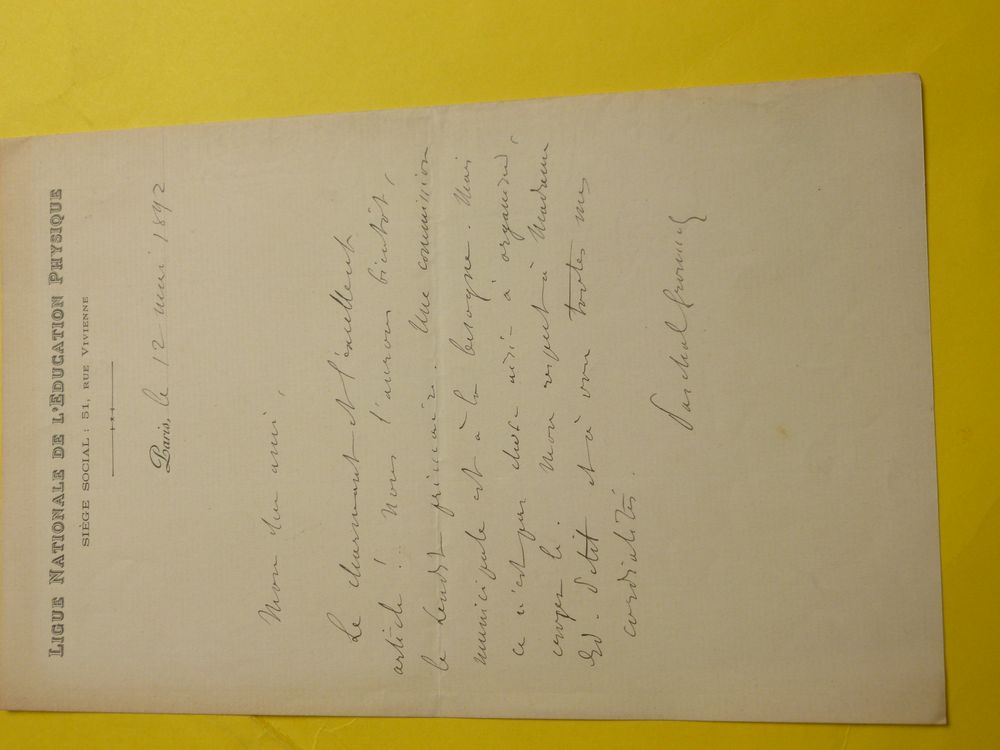 LIGUE NATIONALE DE L'EDUCATION PHYSIQUE
SIÈGE SOCIAL : 51, RUE VIVIENNE
Paris, le 12 mai 1892
Mon cher ami,
Le charmant et l'excellent
article ! Nous l'aurons bientôt,
le Lendit primaire. Une commission
municipale est à la besogne. Mais
ce n'est pas chose aisée à organiser,
croyez le. Mon respect à Madame
Ed. Petit et à vous toutes mes
cordialités.
Paschal Grousset